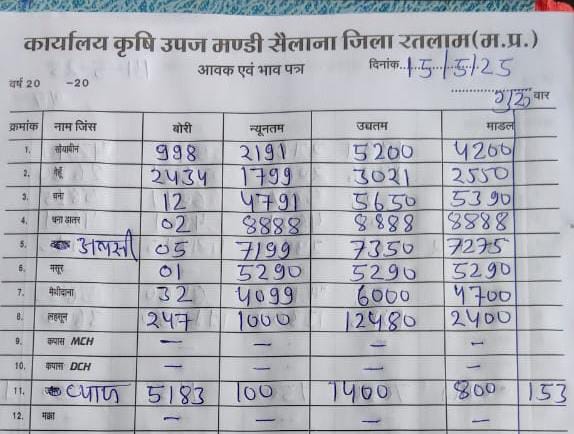 कार्यालय कृषि उपज मण्डी सैलाना जिला रतलाम(म.प्र.)
आवक एवं भाव पत्र दिनांक..15/5/25
वर्ष 20 -20 गुरू वार
क्रमांक नाम जिंस बोरी न्यूनतम उच्चतम माडल
1. सोयाबीन 998 2191 5200 4200
2. गेहूँ 2434 1799 3021 2550
3. चना 12 4791 5650 5390
4. चना डालर 02 8888 8888 8888
5. अलसी 05 7199 7350 7275
6. मसूर 01 5290 5290 5290
7. मेथीदाना 32 4099 6000 4700
8. लहसून 247 1000 12480 2400
9. कपास MCH — — — —
10. कपास DCH — — — —
11. प्याज 5183 100 1400 800 153
12. मक्का — — — —